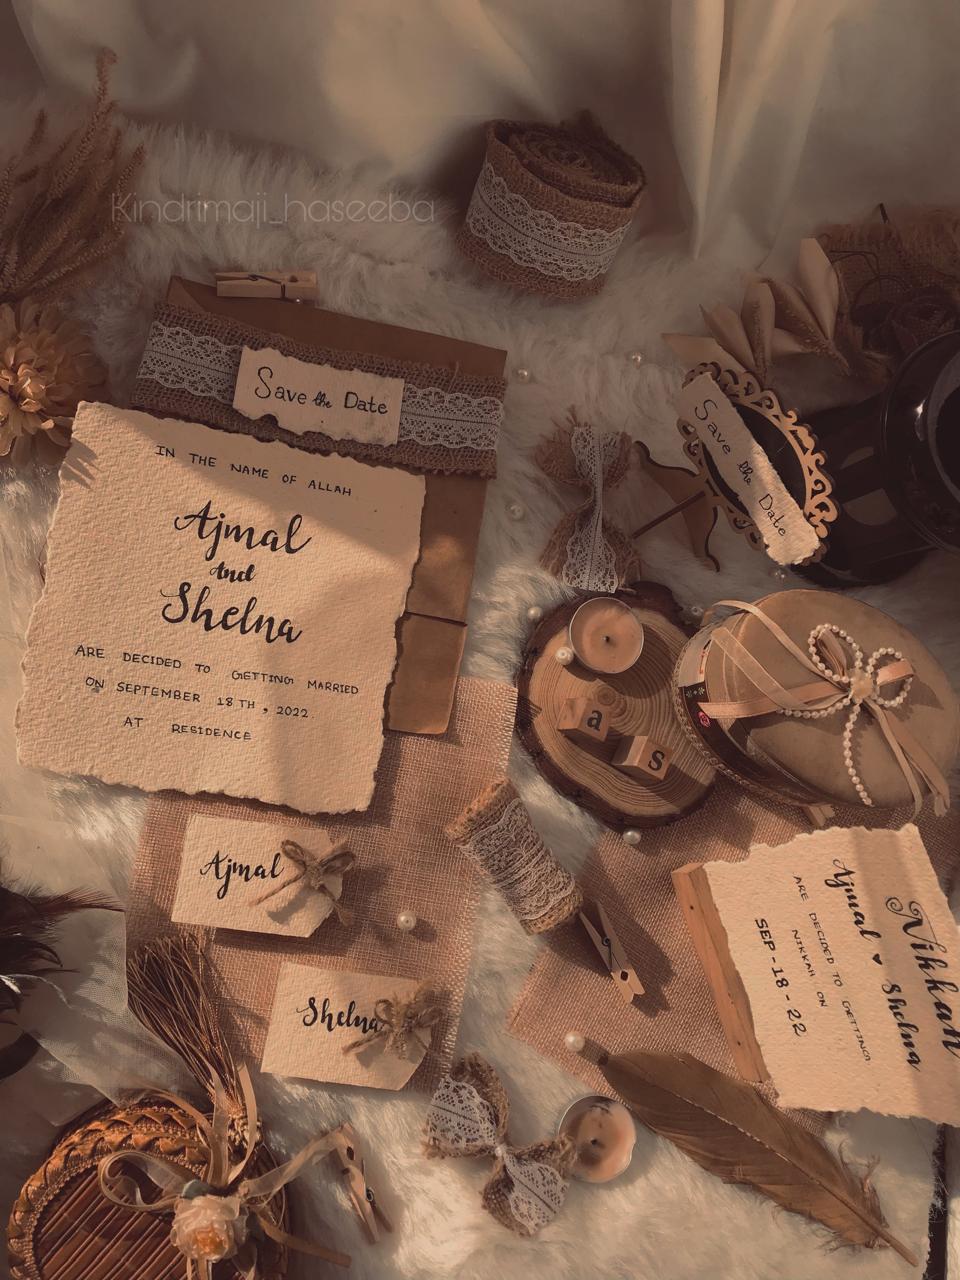 Kindrimaji_haseeba
Save the Date
IN THE NAME OF ALLAH
Ajmal
And
Shelna
ARE DECIDED TO GETTING MARRIED
ON SEPTEMBER 18TH, 2022.
AT RESIDENCE
Save the Date
a
s
Ajmal
Shelna
Nikkah
Ajmal ♥ Shelna
ARE DECIDED TO GETTING
NIKKAH ON
SEP-18-22